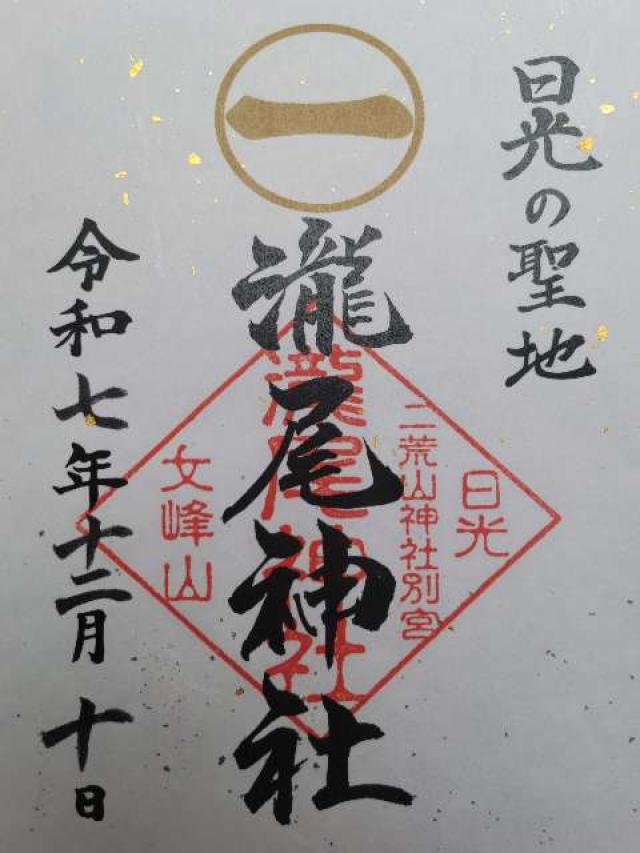 日光の聖地
一
瀧尾神社
日光
二荒山神社別宮
瀧尾神社
女峰山
令和七年十二月十日